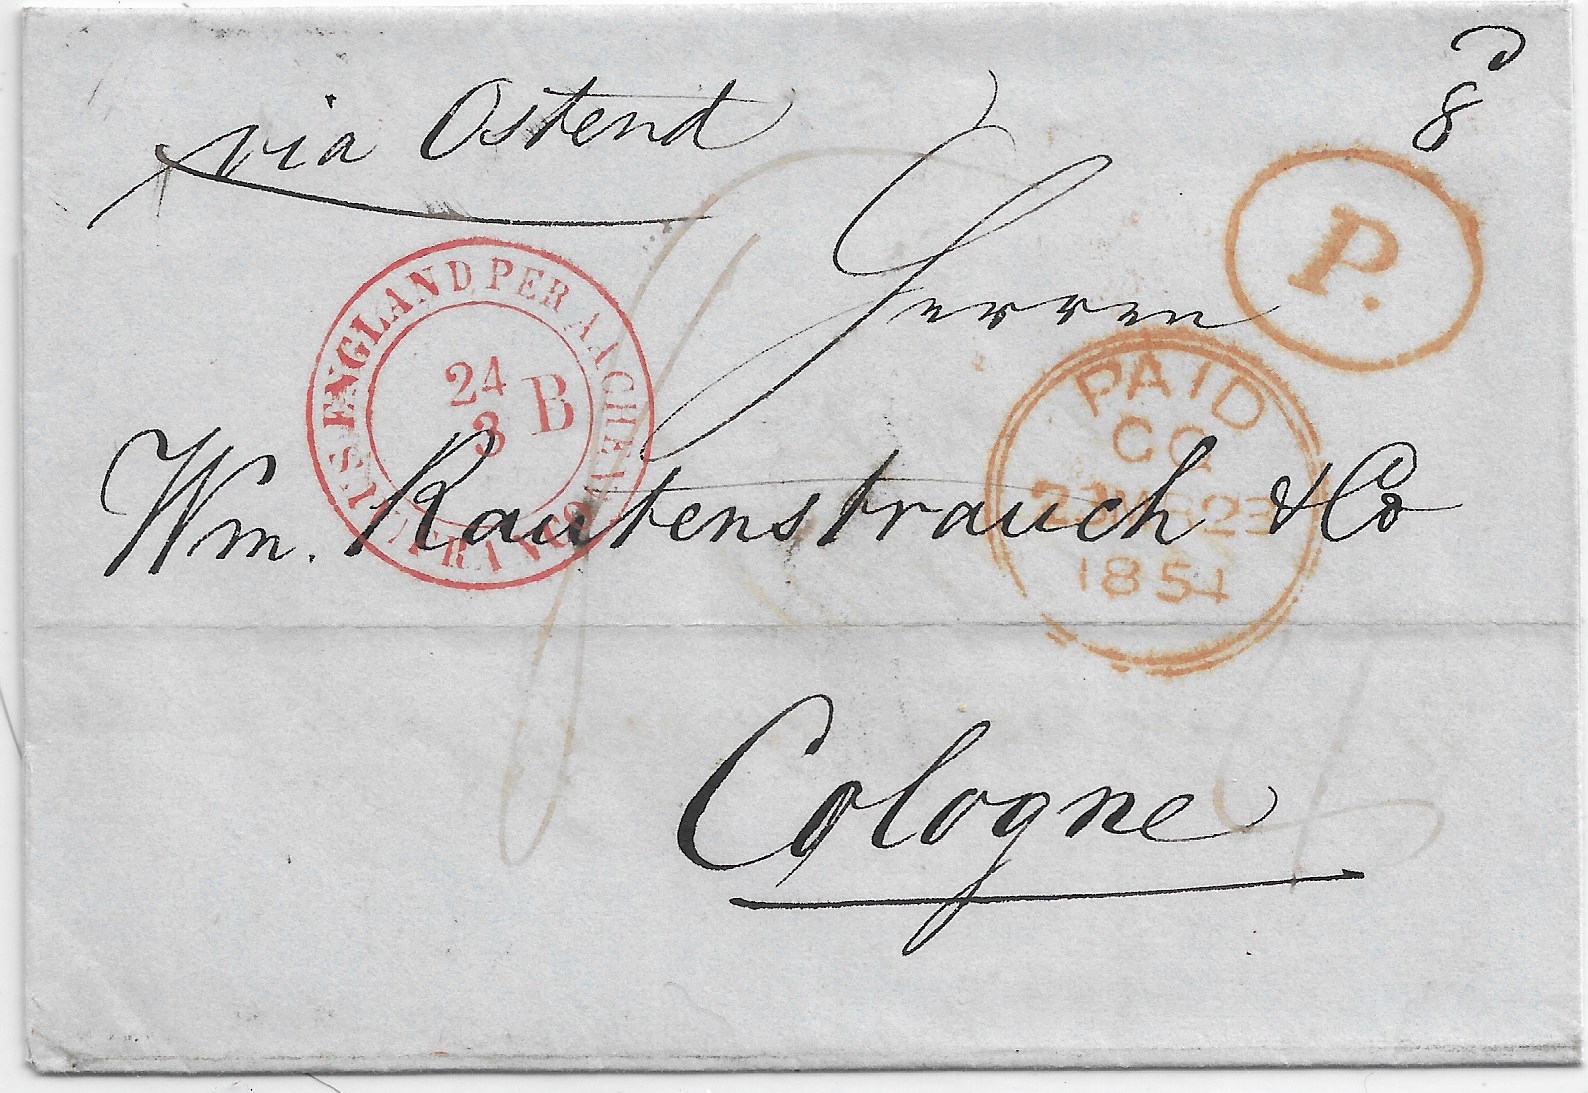 8d
via Ostend
P.
Herren
AUS ENGLAND PER AACHEN
FRANCO
24
3
B
PAID
CQ
23 MR 23
1854
Wm. Rautenstrauch & Co
Cologne